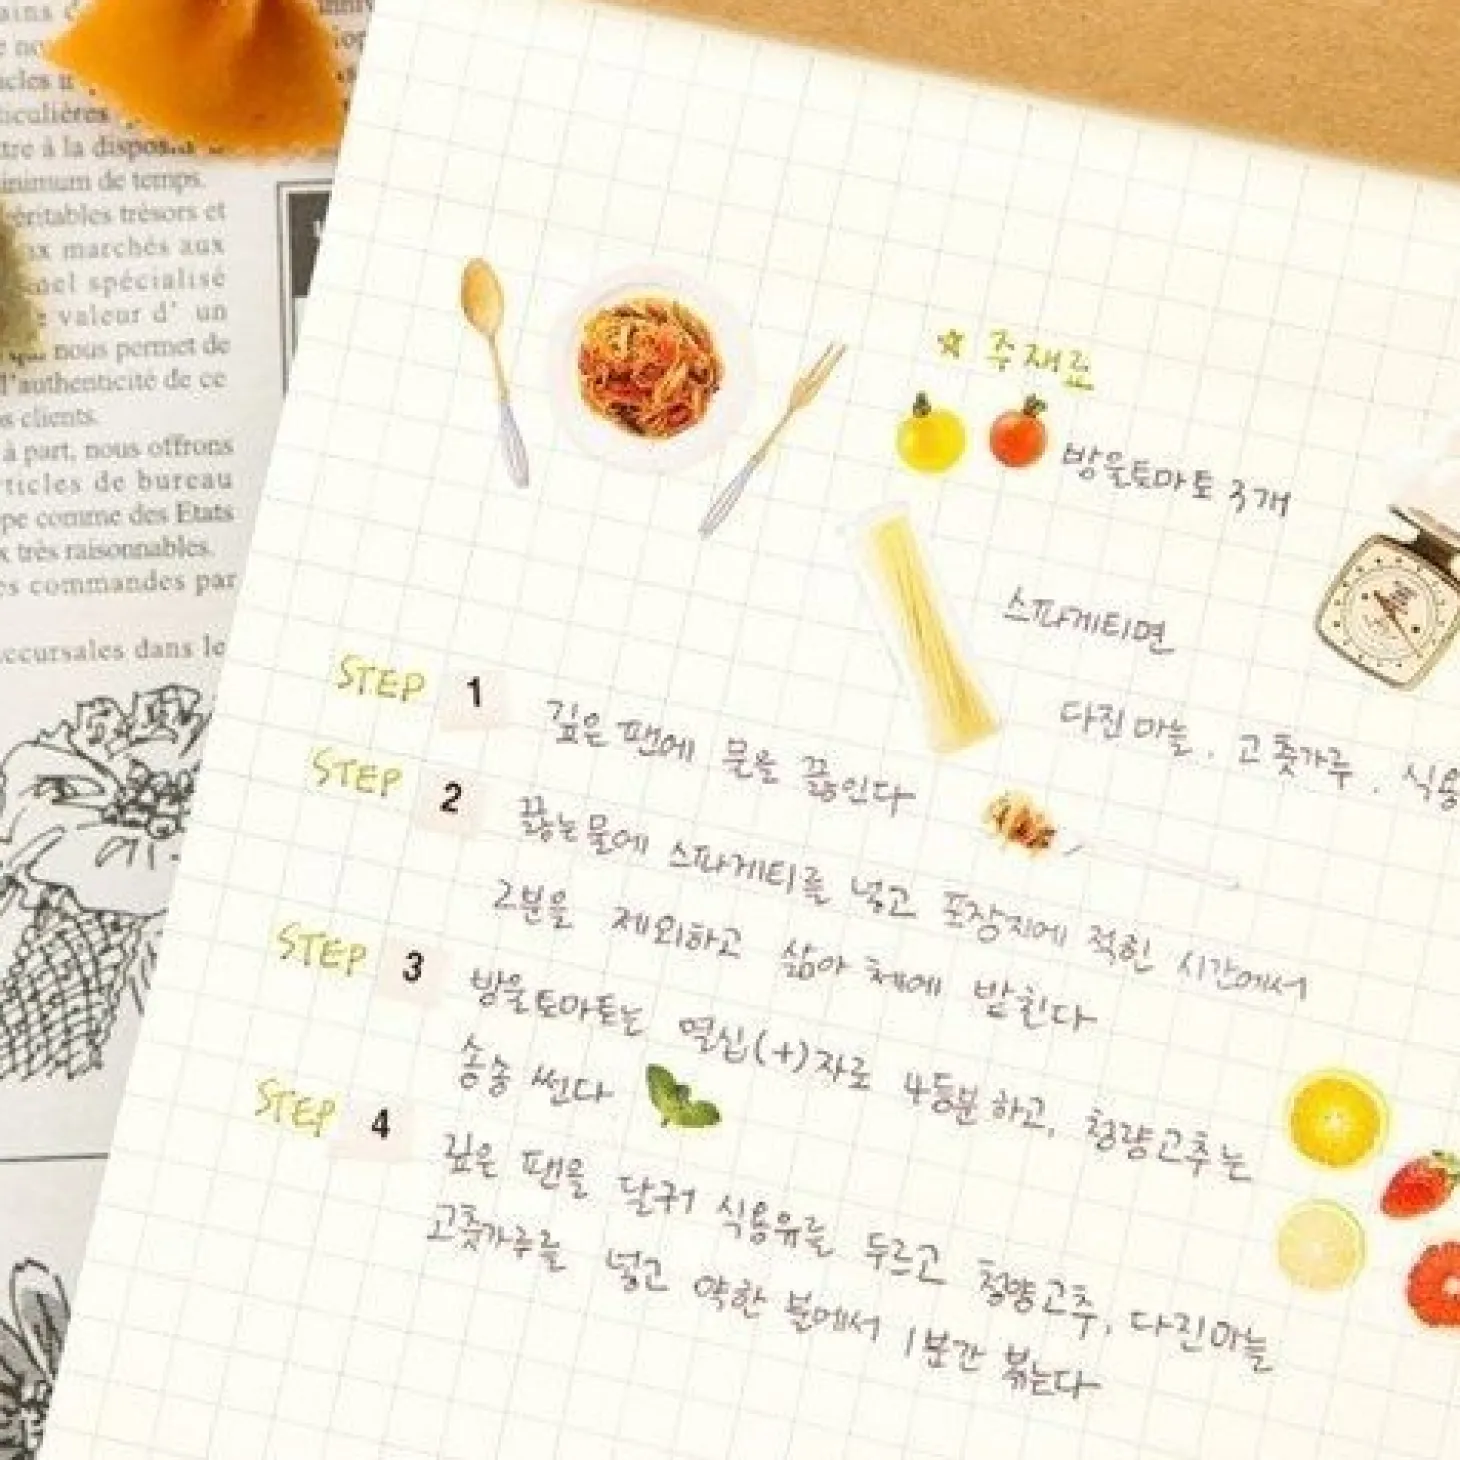 ttre à la
inimum de temps.
véritables trésors et
ux marchés aux
nel spécialisé
valeur d' un
nous permet de
l'authenticité de ce
s clients.
à part, nous offrons
rticles de bureau
pe comme des Etats
x très raisonnables.
es commandes par
ccursales dans le
☆ 주재료
방울토마토 3개
스파게티면
다진마늘. 고춧가루.
STEP 1 깊은 팬에 물을 끓인다
STEP 2 끓는물에 스파게티를 넣고 포장지에 적힌 시간에서
2분을 제외하고 삶아 체에 받힌다
STEP 3 방울토마토는 열십(+)자로 4등분하고, 청량고추는
송송 썬다
STEP 4 깊은 팬을 달궈 식용유를 두르고 청양고추, 다진마늘
고춧가루를 넣고 약한 불에서 1분간 볶는다